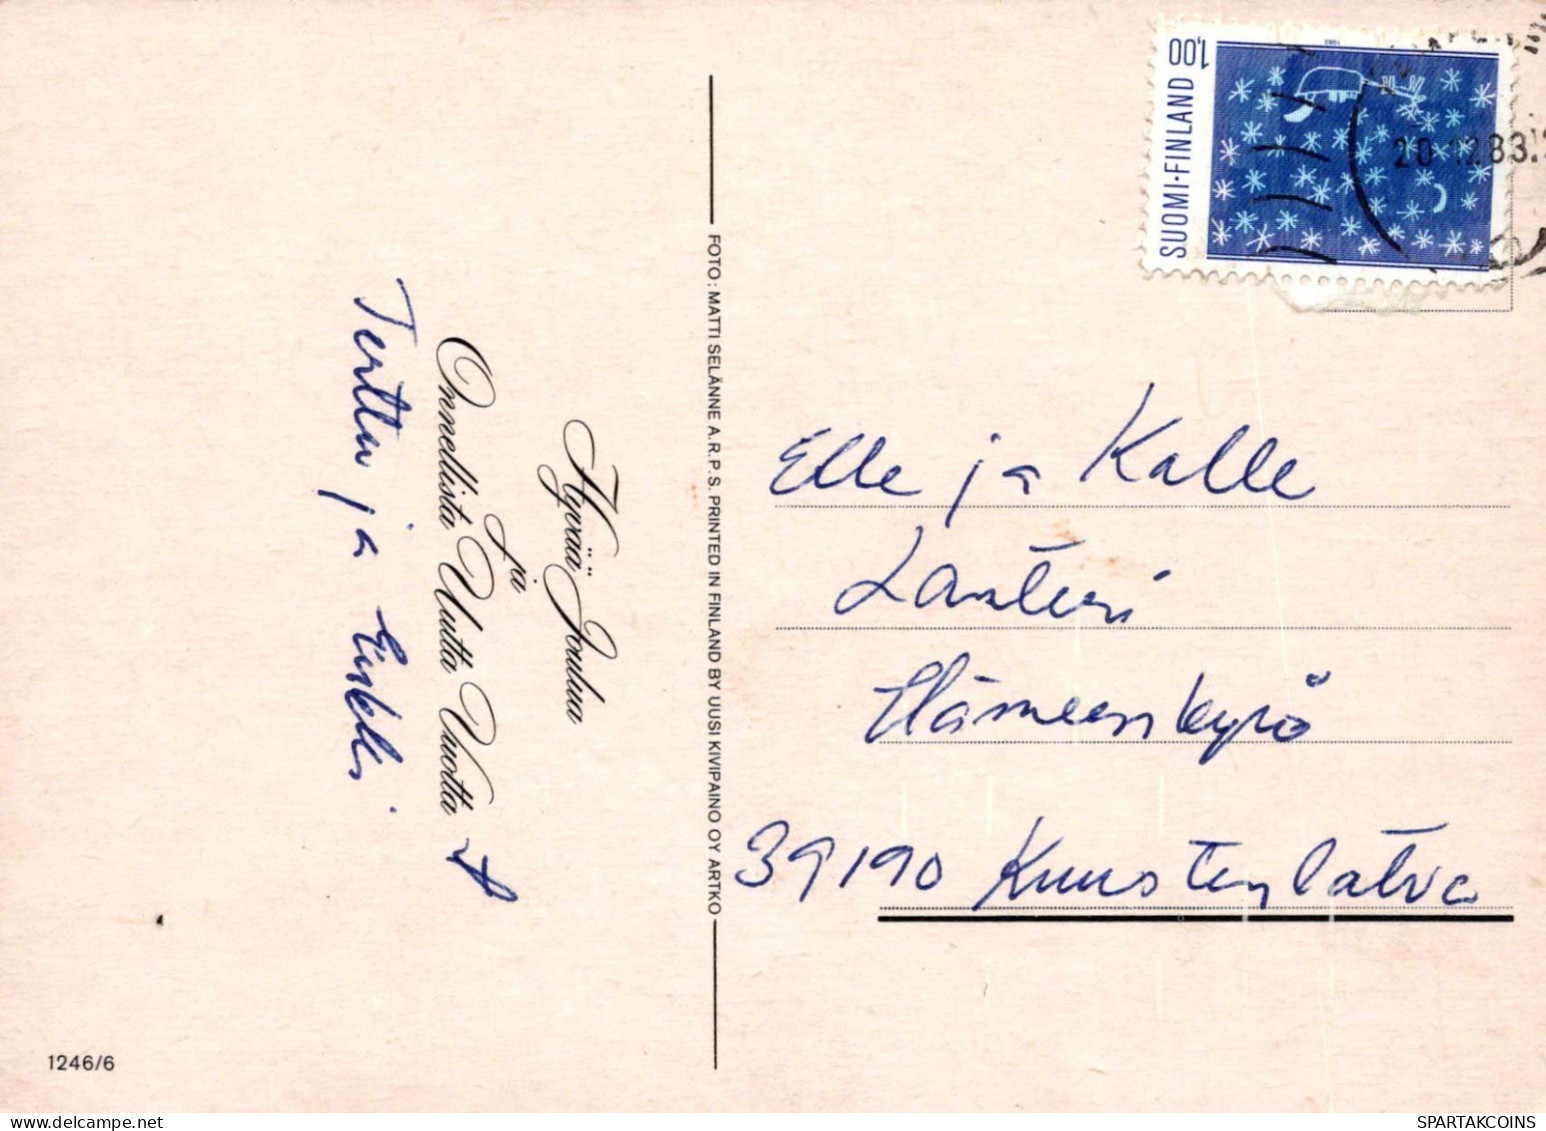 Hyvää Joulua
ja
Onnellista Uutta Vuotta
Terttu ja Erkki
FOTO: MATTI SELÄNNE A.R.P.S. PRINTED IN FINLAND BY UUSI KIVIPAINO OY ARTKO
1246/6
SUOMI·FINLAND 1,00
20.12.83
Elle ja Kalle
Lanteri
Hämeenkyrö
39190 Kuustenlatva
SPARTAKCOINS